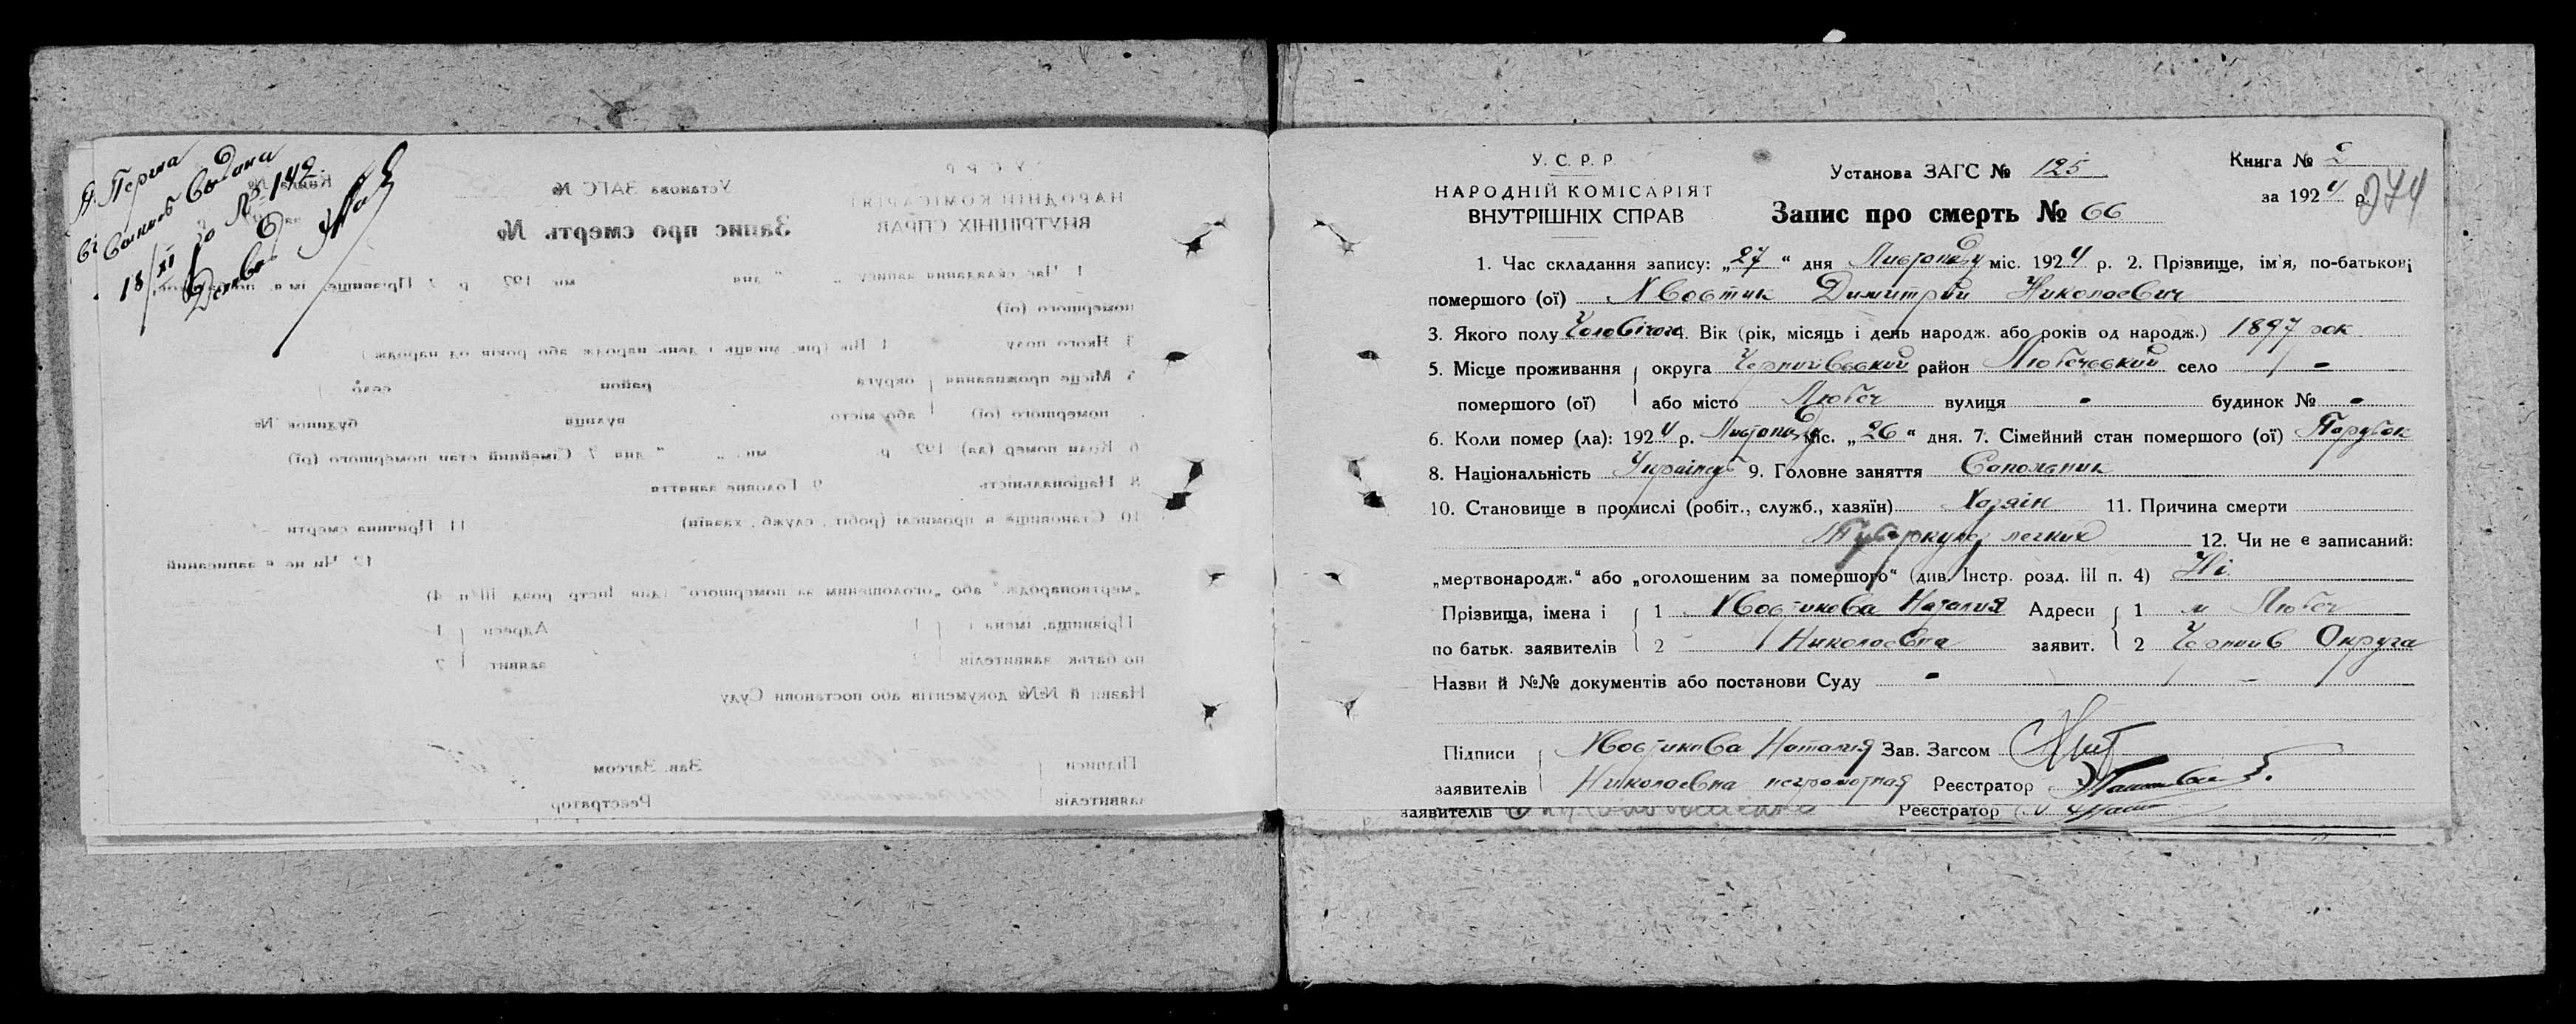 Перша
Выпись Выдана
18/XI за № 142
У. С. Р. Р
НАРОДНІЙ КОМІСАРІЯТ
ВНУТРІШНІХ СПРАВ
Установа ЗАГС № 125
Запис про смерть № 66
Книга № 2
за 1924 р.
274
1. Час складання запису: „27“ дня Листопаду міс. 1924 р. 2. Прізвище, ім'я, по-батькові
помершого (ої) Хвостик Димитрий Николаевич
3. Якого полу Чоловічого 4. Вік (рік, місяць і день народж. або років од народж.) 1897 рок
5. Місце проживання округа Чернигівський район Любечський село -
помершого (ої) або місто Любеч вулиця - будинок № -
6. Коли помер (ла): 1924 р. Листопаду міс. „26“ дня. 7. Сімейний стан помершого (ої) Парубок
8. Національність Українець 9. Головне заняття Сапожник
10. Становище в промислі (робіт., служб., хазяїн) Хозяін 11. Причина смерти
Туберкулез легких 12. Чи не є записаний:
„мертвонародж.“ або „оголошеним за помершого“ (див. Інстр. розд. III п. 4) Ні
Прізвища, імена і 1 Хвостикова Наталия Адреси 1 м Любеч
по батьк. заявителів 2 Николаевна заявит. 2 Чернигів Округа
Назви й №№ документів або постанови Суду -
Підписи Хвостикова Наталия Зав. Загсом
заявителів Николаевна неграмотная Реєстратор
заявителів Реєстратор